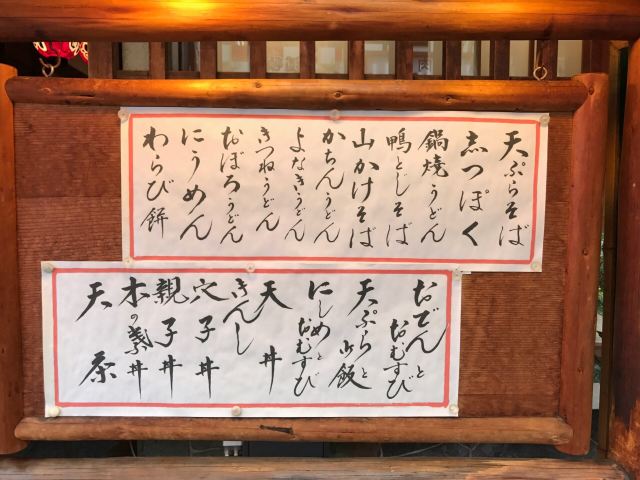 天ぷらそば
志っぽく
鍋焼うどん
鴨とじそば
山かけそば
かちんうどん
よなきうどん
きつねうどん
おぼろうどん
にうめん
わらび餅
おでんとおむすび
天ぷらと御飯
にしめとおむすび
天丼
きんし丼
穴子丼
親子丼
木の葉丼
天茶